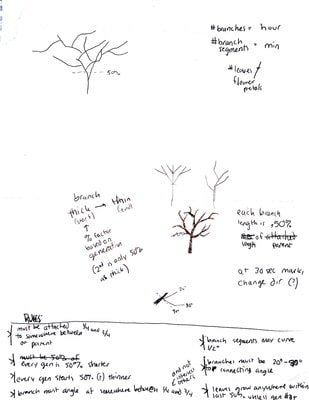 #branches = hour
#branch
segments = min
#leaves /
flower
petals
50%
branch
thick → thin
(start) (end)
% factor
based on
generation
(2nd is only 50%
as thick)
each branch
length is .50%
of attached
length parent
at 30 sec mark,
change dir (?)
20°
90°
RULES
must be attached
to somewhere between 1/4 and 3/4
of parent
must be 50% of
every gen is 50% shorter
every gen starts 50% (?) thinner
branch must angle at somewhere between 1/4 and 3/4
and not
intersect
others
branch segments may curve
1/2"
branches must be 20°-90°
connecting angle
leaves grow anywhere within
last 50%, unless gen